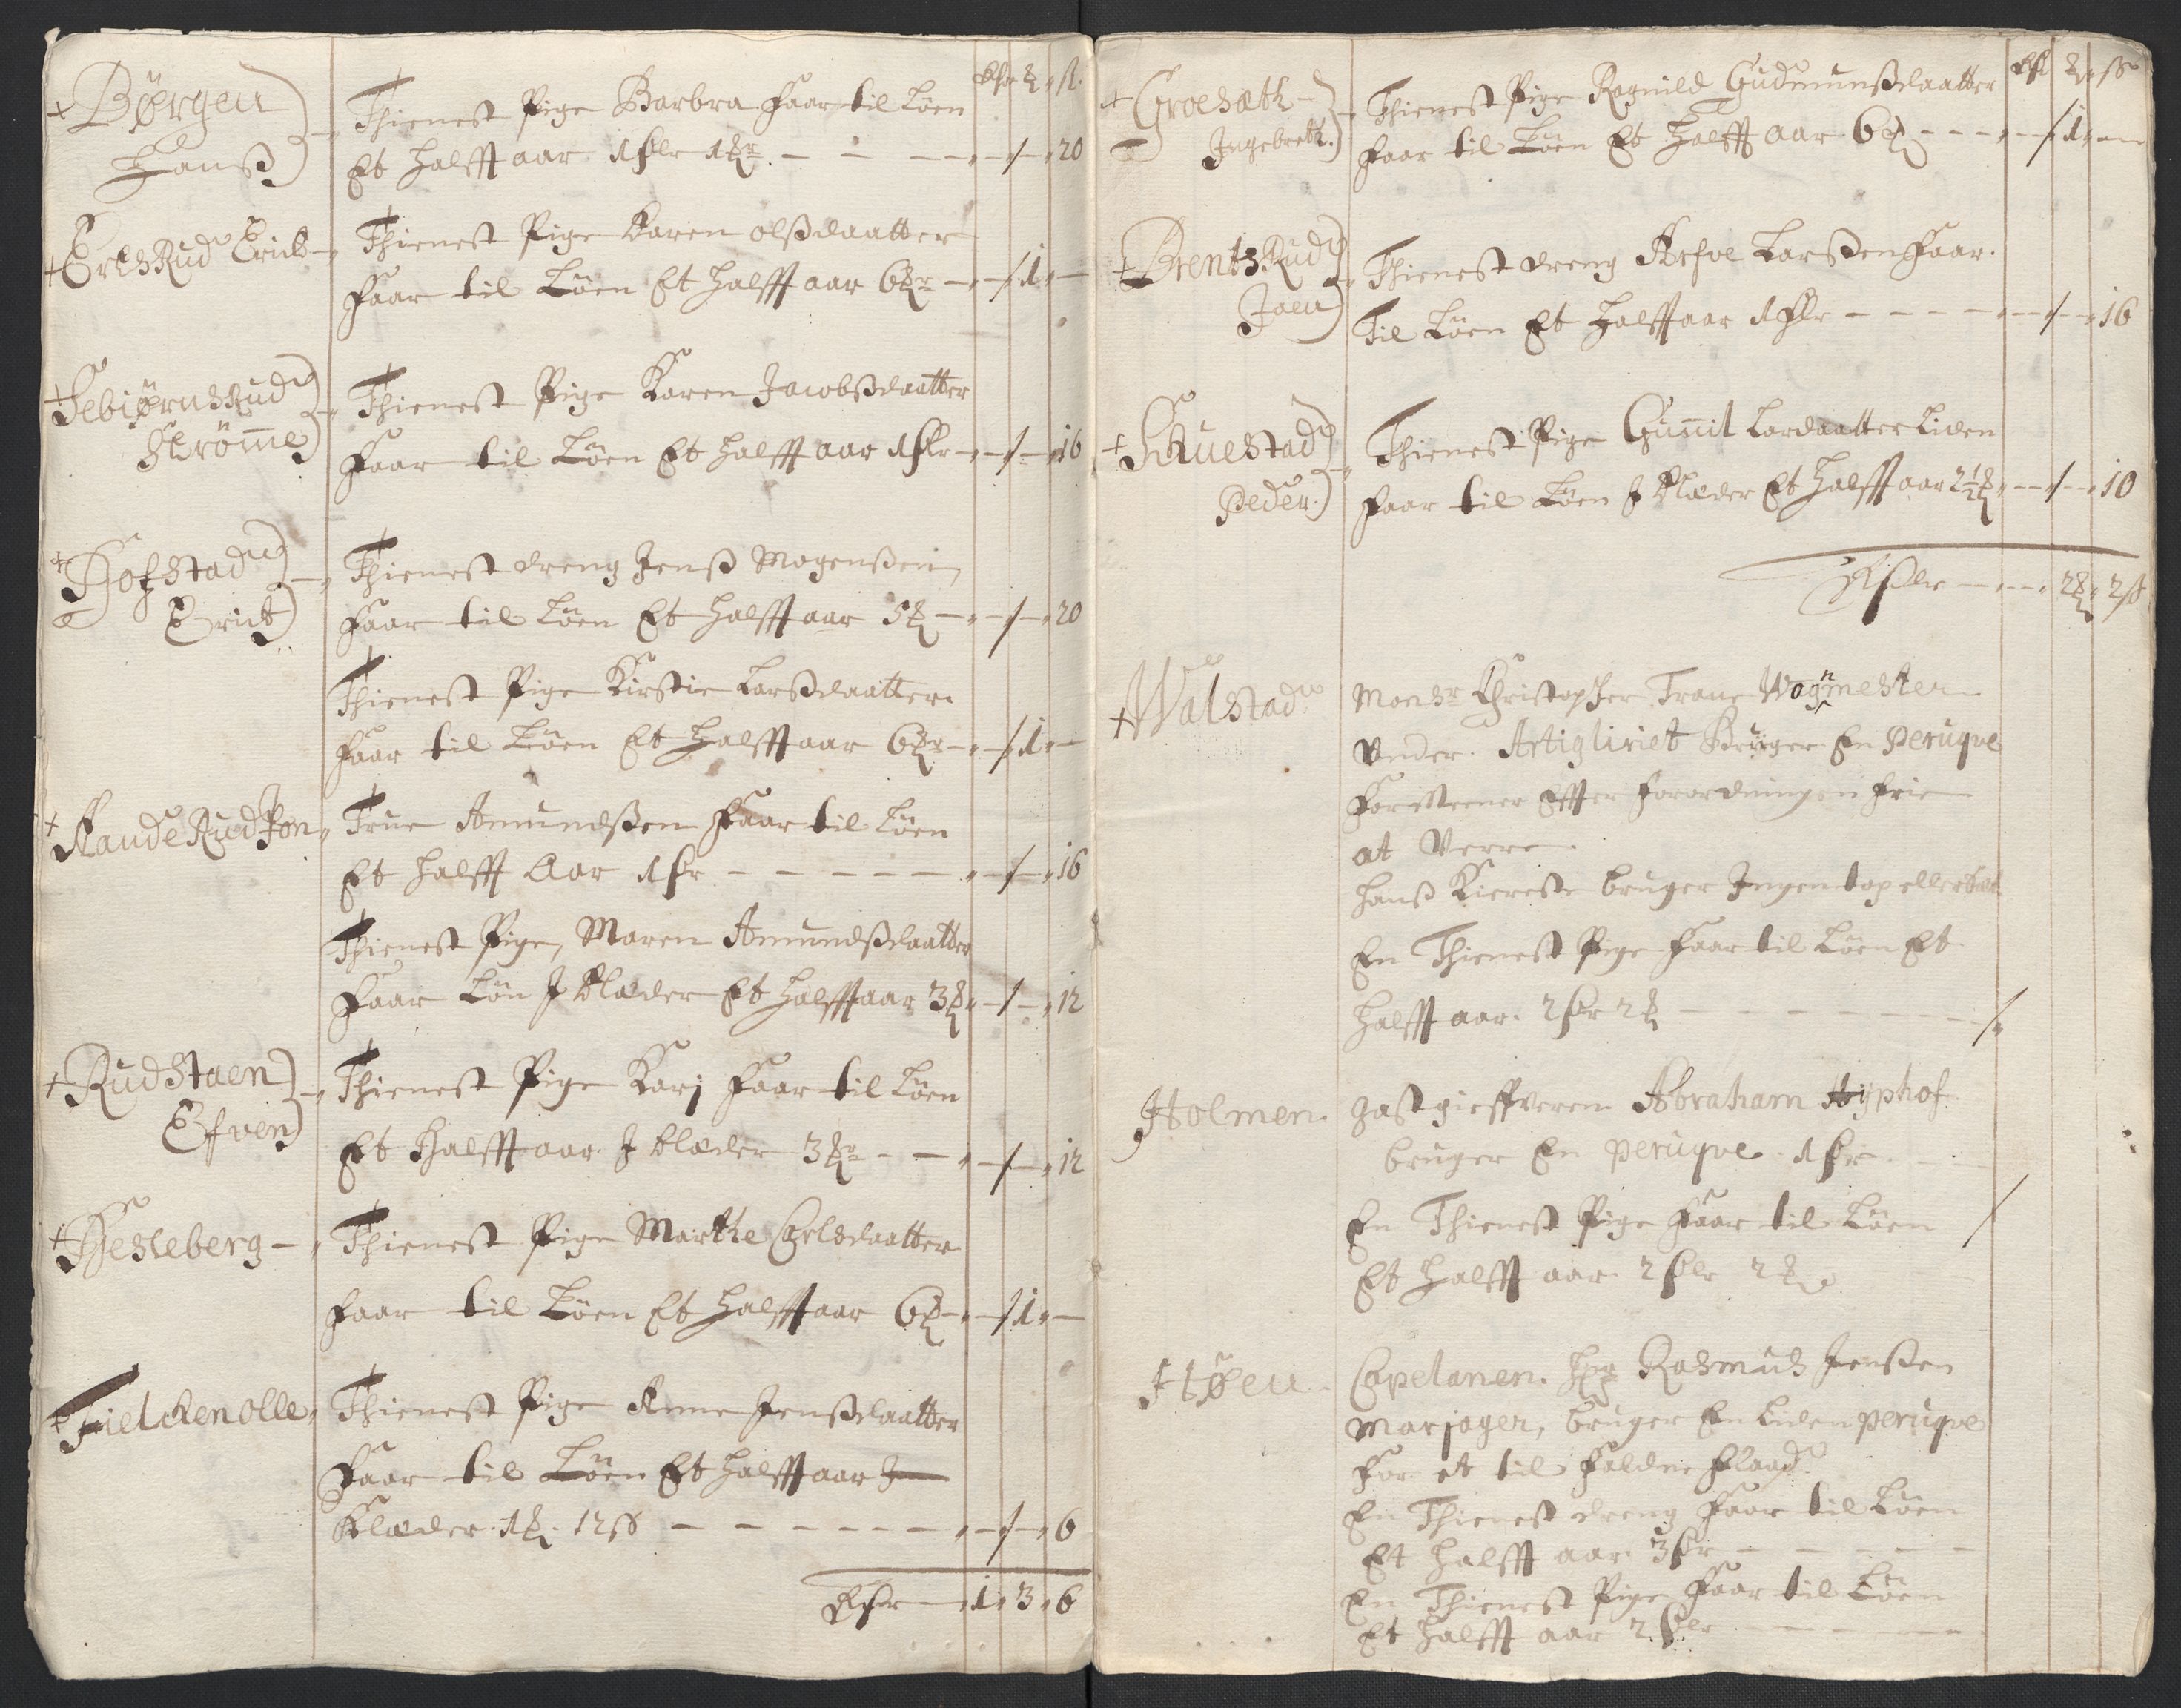 Børgen
Hanß
Thienest Pige Barbra Faar til Løen
Et halfft aar 1 Rdlr 1 ort - 20
Erchsrud Erick
Thienest Pige Karen olßdaatter
Faar til Løen Et halfft aar 6 ort - 1 -
Tebiørnsrud
Strømme
Thienest Pige Karen Jacobßdaatter
Faar til Løen Et halfft aar 1 Rdlr - 16
Hofstad
Erick
Thienest dreng Jenß Mogenßen
Faar til Løen Et halfft aar 5 ort - 20
Thienest Pige Kirstie Larßdaatter
Faar til Løen Et halfft aar 6 ort - 1 -
Haude Rud Jon
True Amundßen Faar til Løen
Et halfft Aar 1 Rdr - 16
Thienest Pige, Maren Amundßdaatter
Faar Løn J Klæder Et halfft aar 3 ort - 12
Rudstaen
Efven
Thienest Pige Karj Faar til Løen
Et Halfft aar J klæder 3 ort - 12
Hesleberg
Thienest Pige Marthe Carlsdaatter
Faar til Løen Et halfft aar 6 ort - 1 -
Fielchen olle
Thienest Pige Anne Jenßdaatter
Faar til Løen Et halfft aar J
Klæder 1 ort 12 ß - 6
Rdr - 1 - 3 - 6
Groesæth
Ingebreth
Thienest Pige Ragnild Gudmunßdaatter
Faar til Løen Et halfft aar 6 ort - 1 -
BrentsRud
Joen
Thienest dreng Arfve Larßen Faar
Til Løen Et halfft aar 1 Rdlr - 16
Skuestad
Peder
Thienest Pige Gunnil Lardaatter Liden
Faar til Løen J Klæder Et halfft aar 2½ ort - 10
Rdlr - 2 ort 2 ß
Walstad
Monsr Christopher Trane Wognmester
Under Artigliriet Bruger En Peruqve
Formeener Effter Forordningen Frie
at Verre
Hanß Kiereste bruger Ingen top eller
En Thienest Pige Faar til Løen Et
halfft aar 2 Rdr 2 ort
Holmen
Gastgieffveren Abraham Hyphof
bruger En Peruqve 1 Rdr
En Thienest Pige Faar til Løen
Et halfft aar 2 Rdlr 2 ort
Capelanen Hr Rasmus Jenßen
Marjager, bruger En Liden Peruqve
For et til Falden
En Thienest dreng Faar til Løen
Et halfft aar 3 Rdr
En Thienest Pige Faar til Løen
Et halfft aar 2 Rdlr